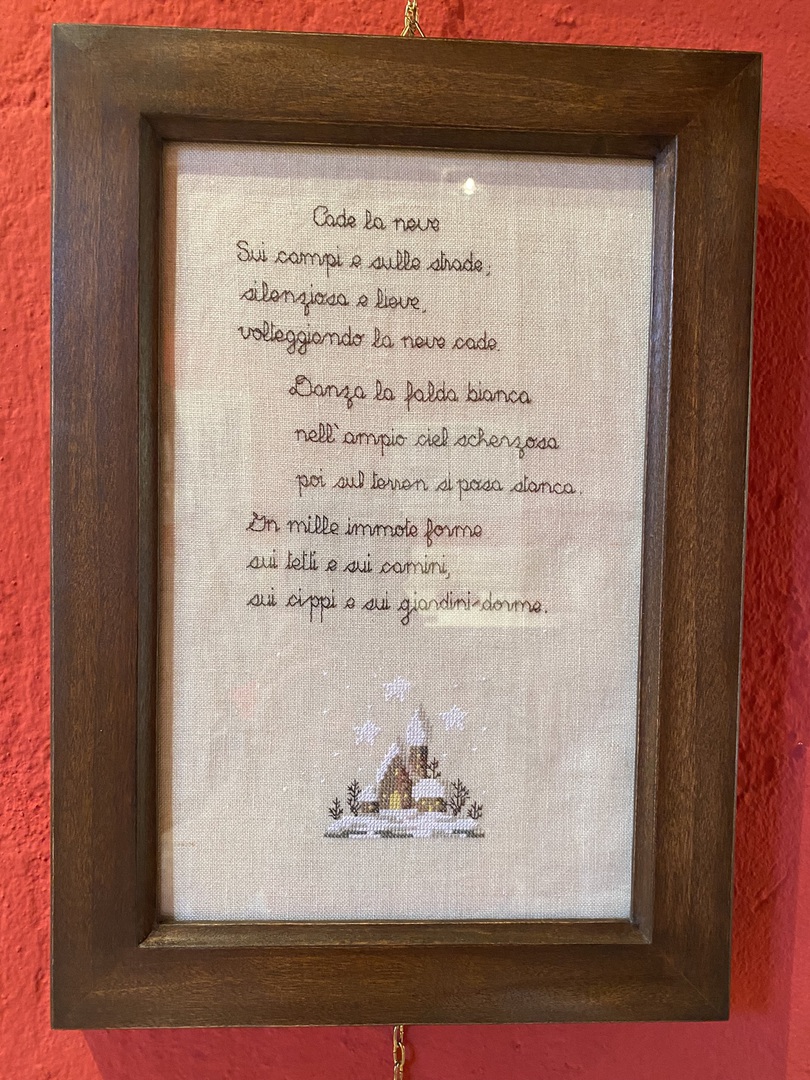 Cade la neve
Sui campi e sulle strade,
silenziosa e lieve,
volteggiando la neve cade.
Danza la falda bianca
nell'ampio ciel scherzosa
poi sul terren si posa stanca.
In mille immote forme
sui tetti e sui camini,
sui cippi e sui giardini-dorme.